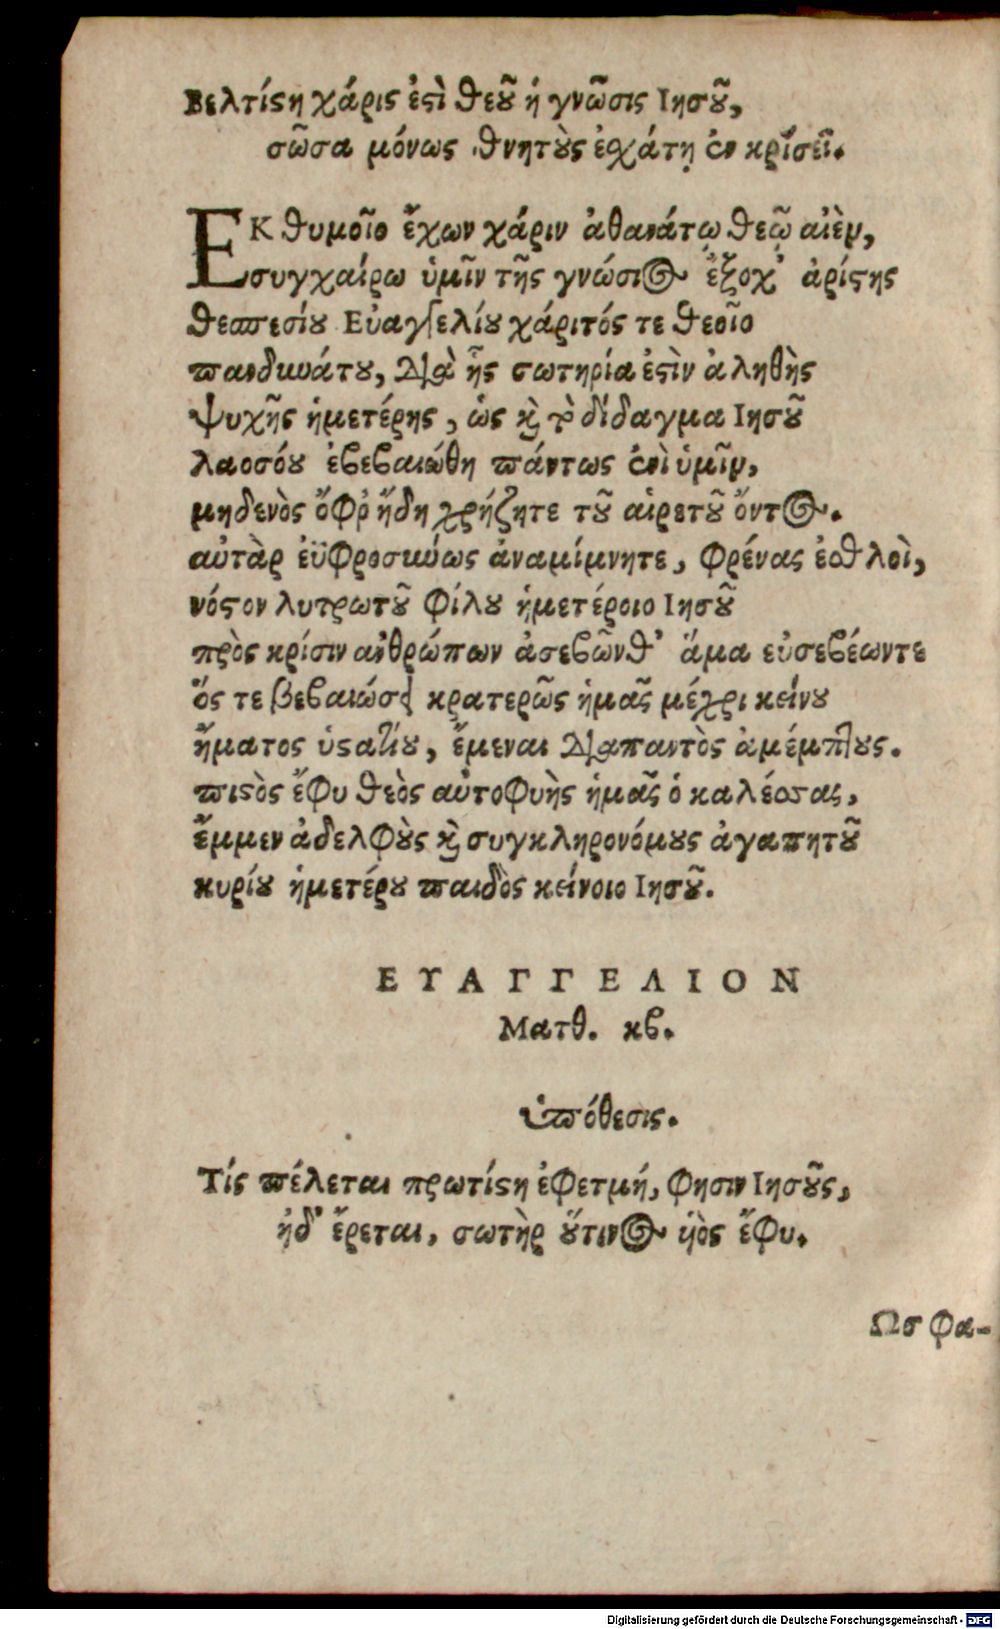 Βελτίϛη χάρις ἐϛὶ θεοῦ ἡ γνῶσις Ιησοῦ,
σῶσα μόνως θνητοὺς ἐσχάτῃ ἐν κρίσεϊ.
ΕΚ θυμοῖο ἔχων χάριν ἀθανάτῳ θεῷ αἰὲν,
συγχαίρω ὑμῖν τῆς γνώσιος ἔξοχ' ἀρίϛης
θεσπεσίου Εὐαγγελίου χάριτός τε θεοῖο
πανδυνάτου, διὰ ἧς σωτηρία ἐϛὶν ἀληθὴς
ψυχῆς ἡμετέρης, ὡς καὶ τὸ δίδαγμα Ιησοῦ
λαοσόου ἐβεβαιώθη πάντως ἐνὶ ὑμῖν,
μηδενὸς ὄφρ' ἤδη χρήζητε τοῦ αἱρετοῦ ὄντος.
αὐτὰρ ἐϋφροσύνως ἀναμίμνητε, φρένας ἐσθλοὶ,
νόϛον λυτρωτοῦ φίλου ἡμετέροιο Ιησοῦ
πρὸς κρίσιν ἀνθρώπων ἀσεβῶνθ' ἅμα εὐσεβέωντε
ὅς τε βεβαιώσει κρατερῶς ἡμᾶς μέχρι κείνου
ἤματος ὑϛατίου, ἔμεναι διαπαντὸς ἀμέμπτους.
πιϛὸς ἔφυ θεὸς αὐτοφυὴς ἡμᾶς ὁ καλέσσας,
ἔμμεν ἀδελφοὺς καὶ συγκληρονόμους ἀγαπητοῦ
κυρίου ἡμετέρου παιδὸς κείνοιο Ιησοῦ.
ΕΥΑΓΓΕΛΙΟΝ
Ματθ. κβ.
ὑπόθεσις.
Τίς πέλεται πρωτίϛη ἐφετμή, φησιν Ιησοῦς,
ἠδ' ἔρεται, σωτὴρ οὕτινος ὑιὸς ἔφυ.
Ως φα-
Digitalisierung gefördert durch die Deutsche Forschungsgemeinschaft - DFG